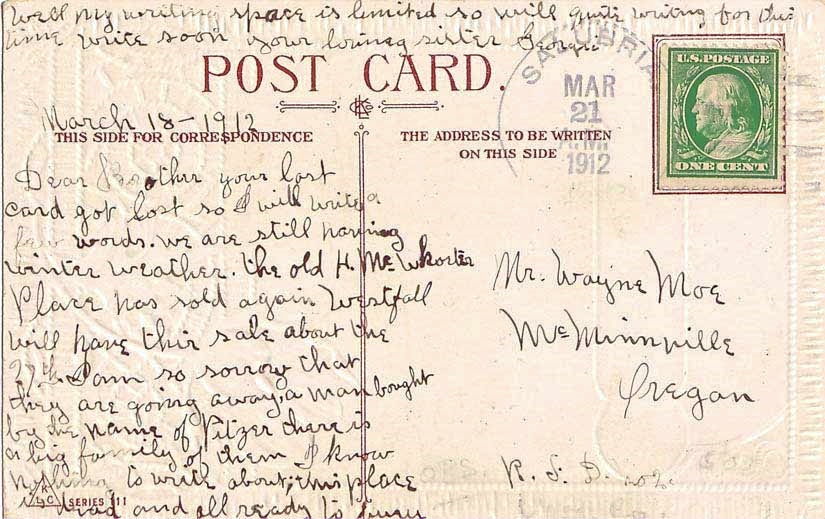 Well my writing space is limited so will quite writing for this
time write soon your loving sister Georgia
POST CARD.
SALUBRIA
MAR
21
A.M.
1912
U.S. POSTAGE
ONE CENT
March 18-1912
THIS SIDE FOR CORRESPONDENCE
THE ADDRESS TO BE WRITTEN
ON THIS SIDE
Dear Brother your last
card got lost so I will write a
few words. we are still having
winter weather. the old H. McWhorter
Place has sold again Westfall
will have their sale about the
27th. I am so sorrow that
they are going away a man bought
by the name of Pitzer there is
a big family of them I know
nothing to write about, this place
is dead and all ready to bury
Mr. Wayne Moe
McMinnville
Oregan
R. F. D. no 2.
SERIES 11